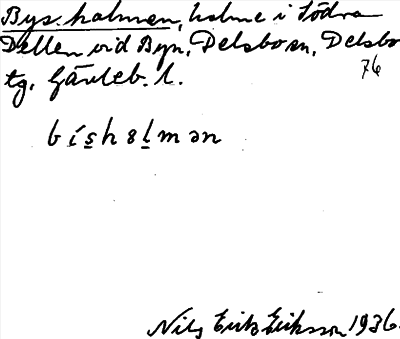 Bys.holmen, holme i Södra
Dellen vid Byn, Delsbo sn, Delsbo
tg. Gävleb. l.
76
bísholmən
Nils Erik Eriksson 1936.